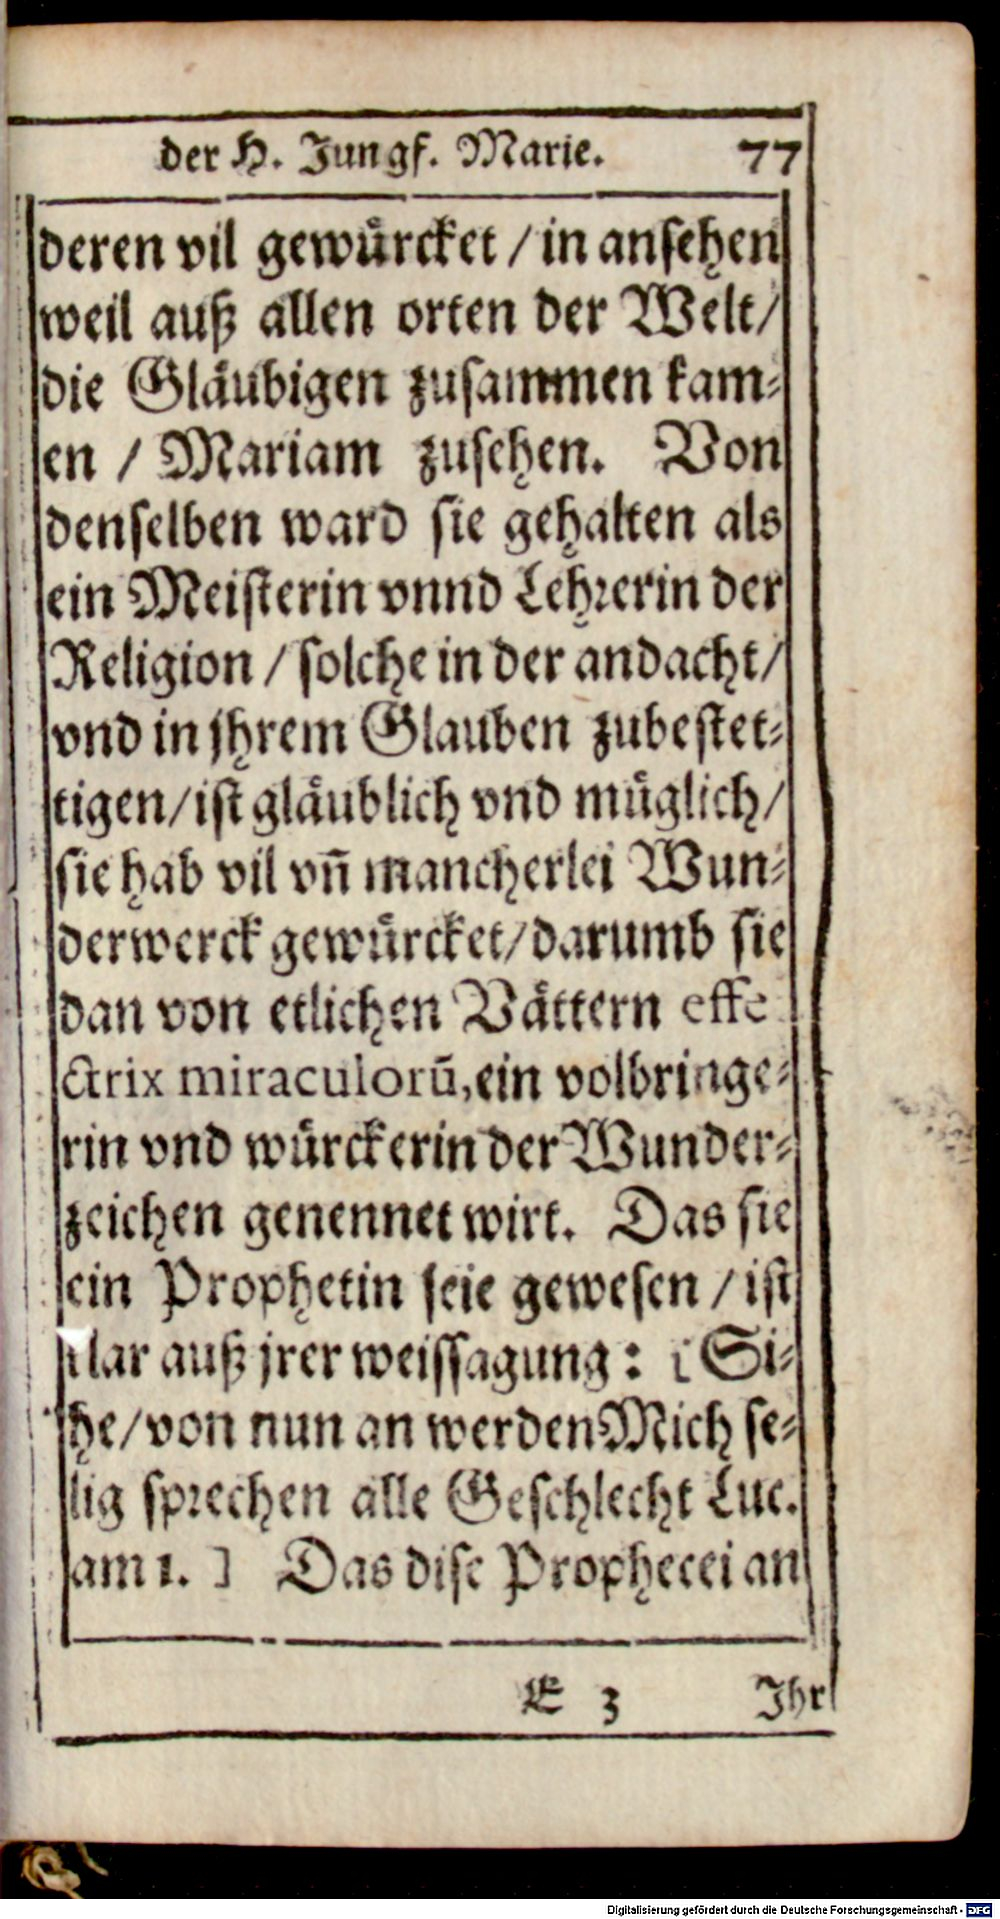 der H. Jungf. Marie. 77
deren vil gewuͤrcket / in ansehen
weil auß allen orten der Welt /
die Glaͤubigen zusammen kam⸗
en / Mariam zusehen. Von
denselben ward sie gehalten als
ein Meisterin vnnd Lehrerin der
Religion / solche in der andacht /
vnd in jhrem Glauben zubestet⸗
tigen / ist glaͤublich vnd muͤglich /
sie hab vil vñ mancherlei Wun⸗
derwerck gewuͤrcket / darumb sie
dan von etlichen Vaͤttern effe
ctrix miraculorũ, ein volbringe⸗
rin vnd wuͤrckerin der Wunder⸗
zeichen genennet wirt. Das sie
ein Prophetin seie gewesen / ist
klar auß jrer weissagung : [ Si⸗
he / von nun an werden Mich se⸗
lig sprechen alle Geschlecht Luc.
am 1. ] Das dise Prophecei an
E 3 Jhr
Digitalisierung gefördert durch die Deutsche Forschungsgemeinschaft - DFG